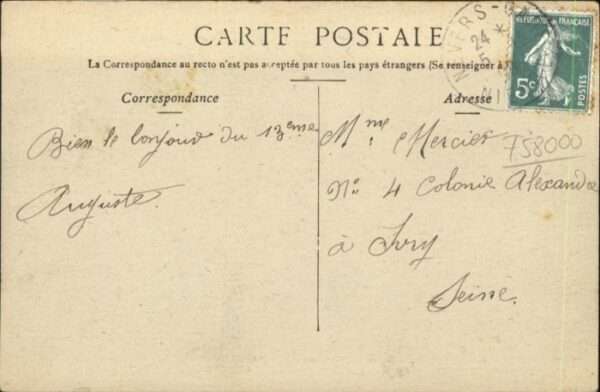 CARTE POSTALE
La Correspondance au recto n'est pas acceptée par tous les pays étrangers (Se renseigner à
Correspondance
Adresse
NEVERS-GARE
24
5
REPUBLIQUE FRANÇAISE
5c
POSTES
Bien le bonjour du 13eme
Auguste.
Mme Mercier
758000
No 4 Colonie Alexandre
à Ivry
Seine.